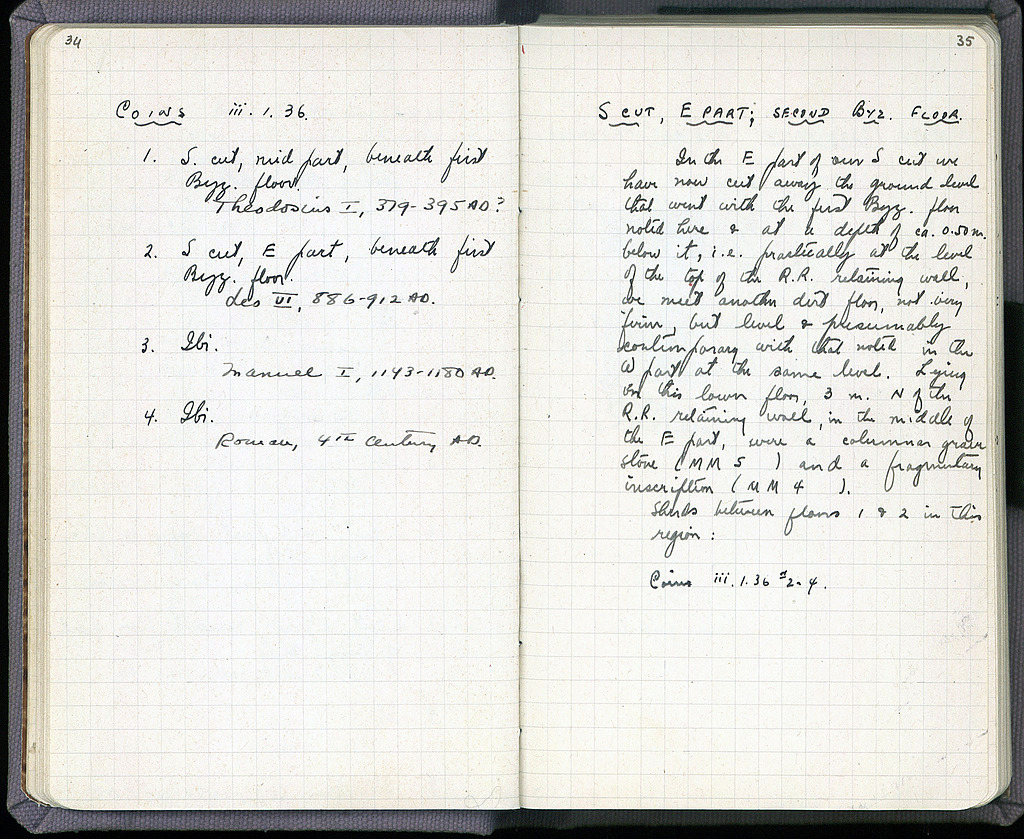 34
Coins iii.1.36.
1. S. cut, mid part, beneath first
Byz. floor.
Theodosius I, 379-395 AD?
2. S cut, E part, beneath first
Byz. floor.
Leo VI, 886-912 AD.
3. Ibi.
Manuel I, 1143-1180 AD.
4. Ibi.
Roman, 4th century AD.
35
S CUT, E PART; SECOND BYZ. FLOOR.
In the E part of our S cut we
have now cut away the ground level
that went with the first Byz. floor
noted here & at a depth of ca. 0.50 m.
below it, i.e. practically at the level
of the top of the R.R. retaining wall,
we meet another dirt floor, not very
firm, but level & presumably
contemporary with that noted in the
W part at the same level. Lying
on this lower floor, 3 m. N of the
R.R. retaining wall, in the middle of
the E part, were a columnar grave
stone (MM 5 ) and a fragmentary
inscription (MM 4 ).
Sherds between floors 1 & 2 in this
region:
Coins iii.1.36 #2-4.